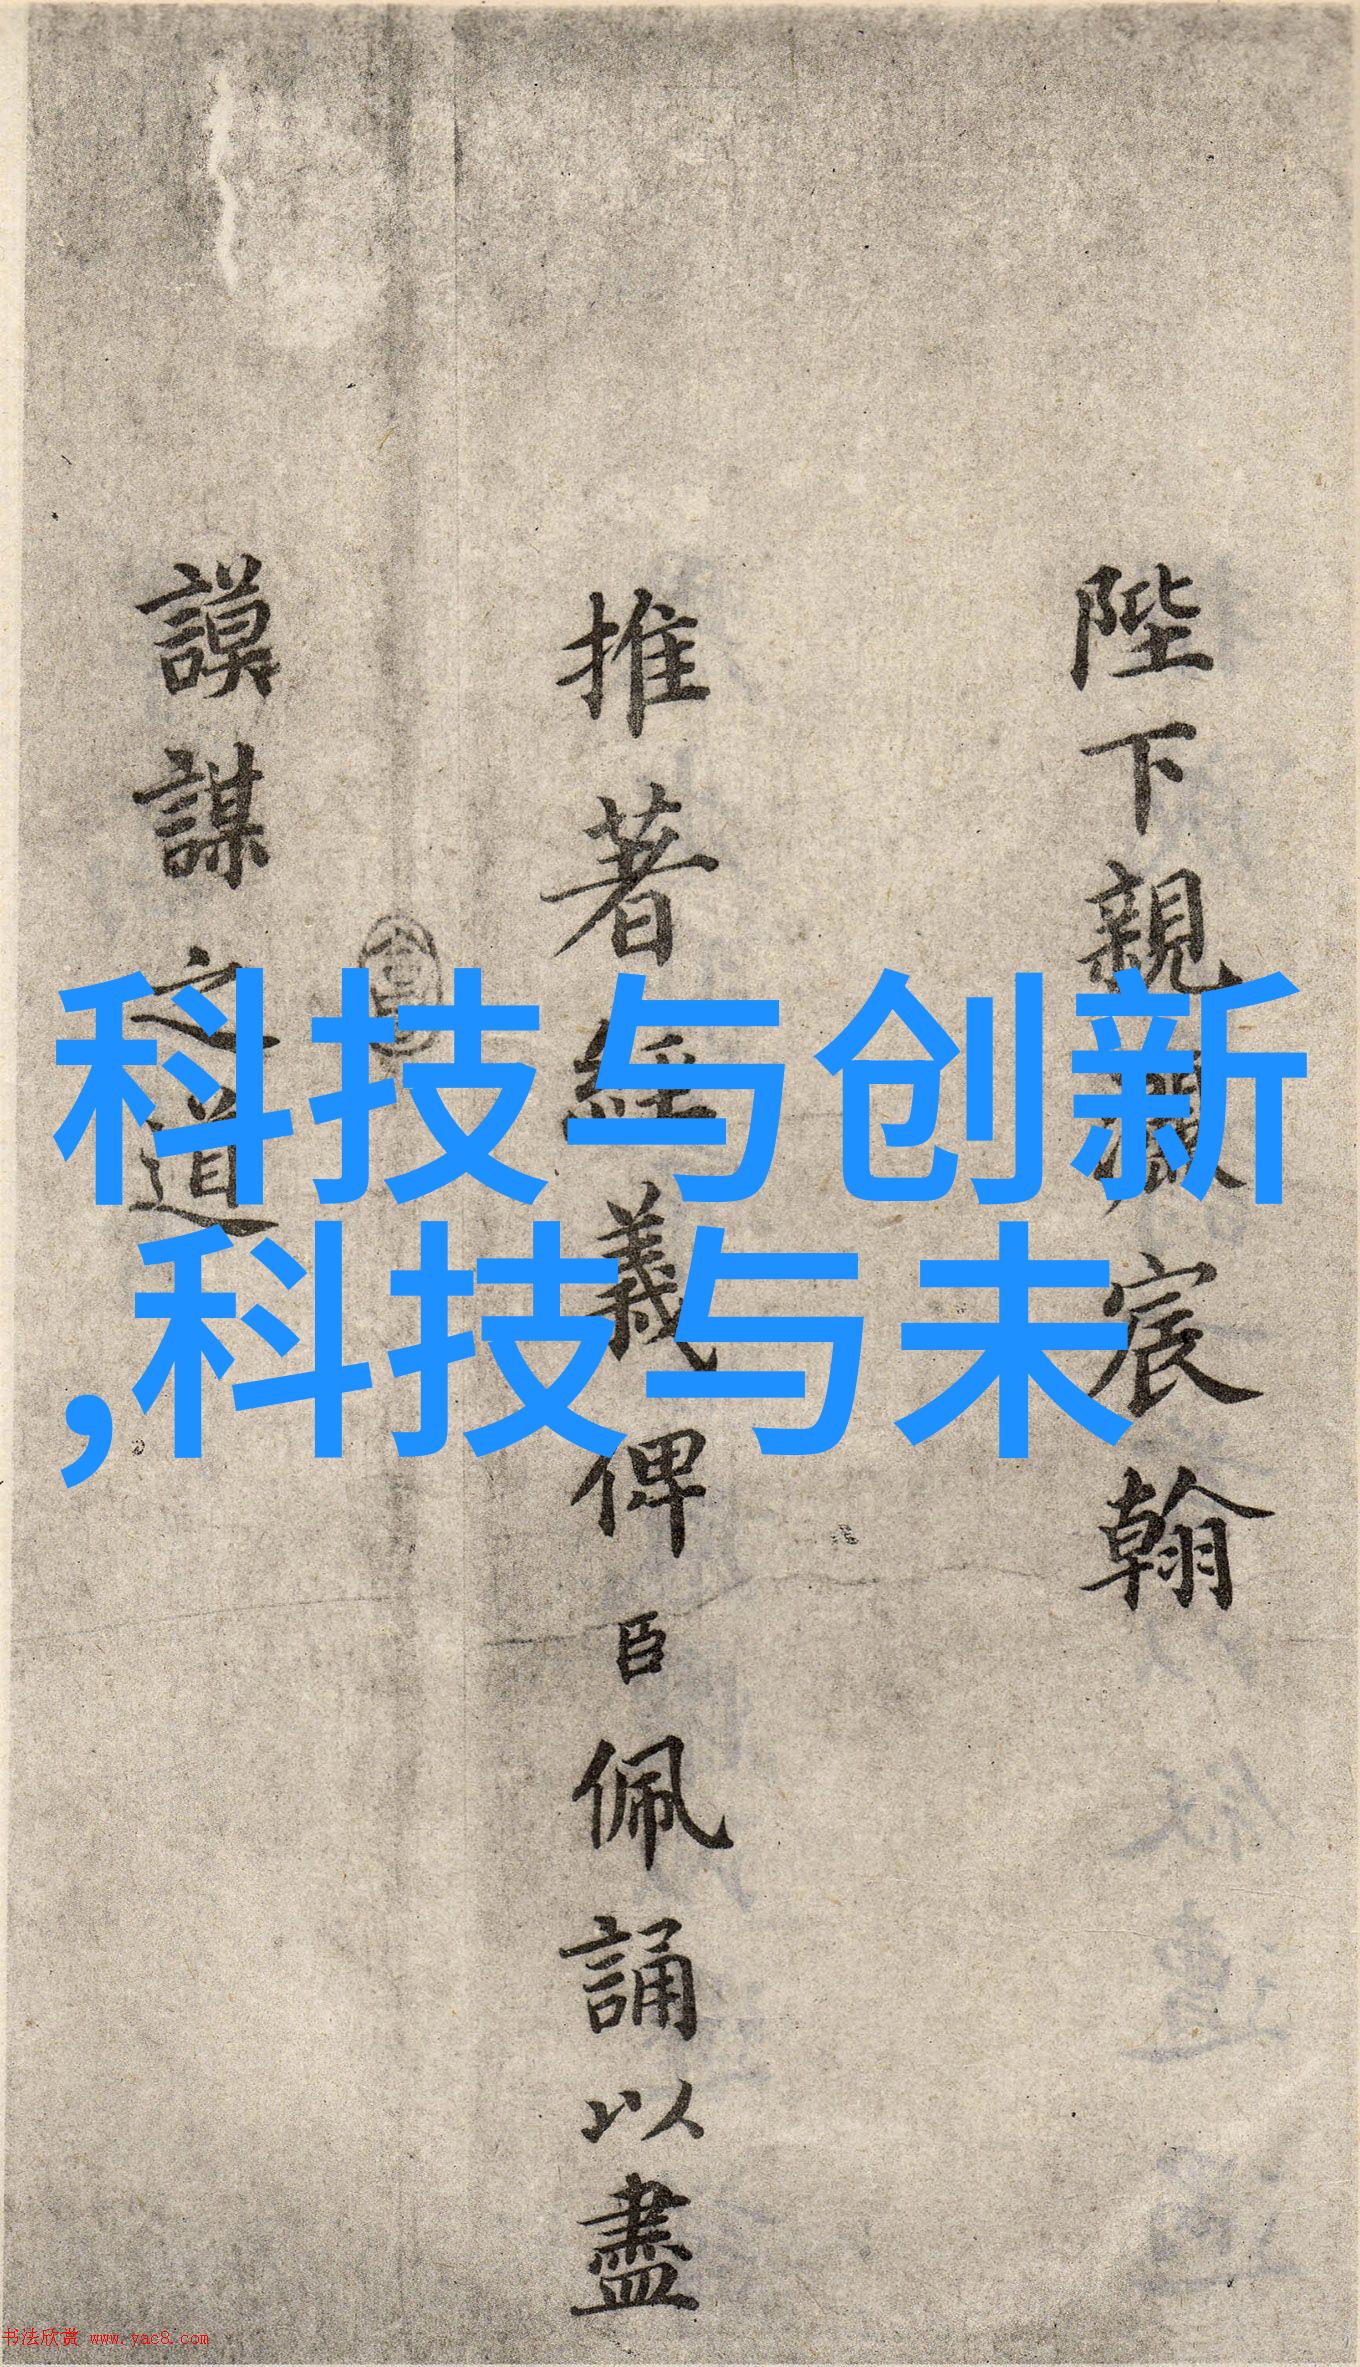 陛下親灑宸翰
推著經義俾臣佩誦以盡
謨謀之道
科技与创新
,科技与未
书法欣赏 www.yac8.com